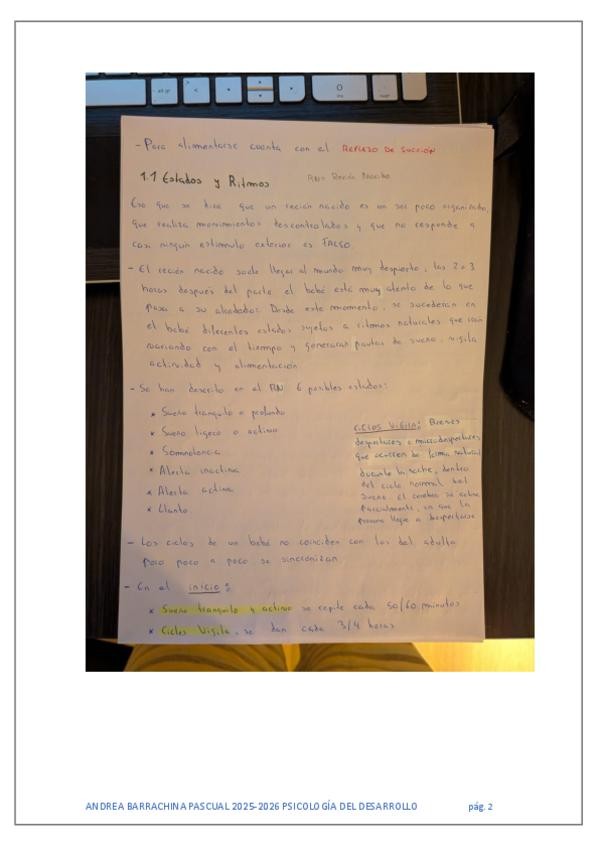 - Para alimentarse cuenta con el REFLEJO DE SUCCIÓN
1.1 Estados y Ritmos
RN= Recién Nacido
Eso que se dice que un recién nacido es un ser poco organizado,
que realiza movimientos descontrolados y que no responde a
casi ningún estímulo exterior es FALSO.
- El recién nacido suele llegar al mundo muy despierto, las 2 o 3
horas después del parto el bebé está muy atento de lo que
pasa a su alrededor. Desde este momento, se sucederán en
el bebé diferentes estados sujetos a ritmos naturales que irán
variando con el tiempo y generarán pautas de sueño, vigilia
actividad y alimentación
- Se han descrito en el RN 6 posibles estados:
* Sueño tranquilo o profundo
* Sueño ligero o activo
* Somnolencia
* Alerta inactiva
* Alerta activa
* Llanto
CICLOS VIGILIA: Breves
despertares o microdespertares
que ocurren de forma natural
durante la noche, dentro
del ciclo normal del
sueño. El cerebro se activa
parcialmente, sin que la
persona llegue a despertarse
- Los ciclos de un bebé no coinciden con los del adulto
pero poco a poco se sincronizan
- En el inicio:
* Sueño tranquilo y activo se repite cada 50/60 minutos
* Ciclos Vigilia, se dan cada 3/4 horas
ANDREA BARRACHINA PASCUAL 2025-2026 PSICOLOGÍA DEL DESARROLLO pág. 2